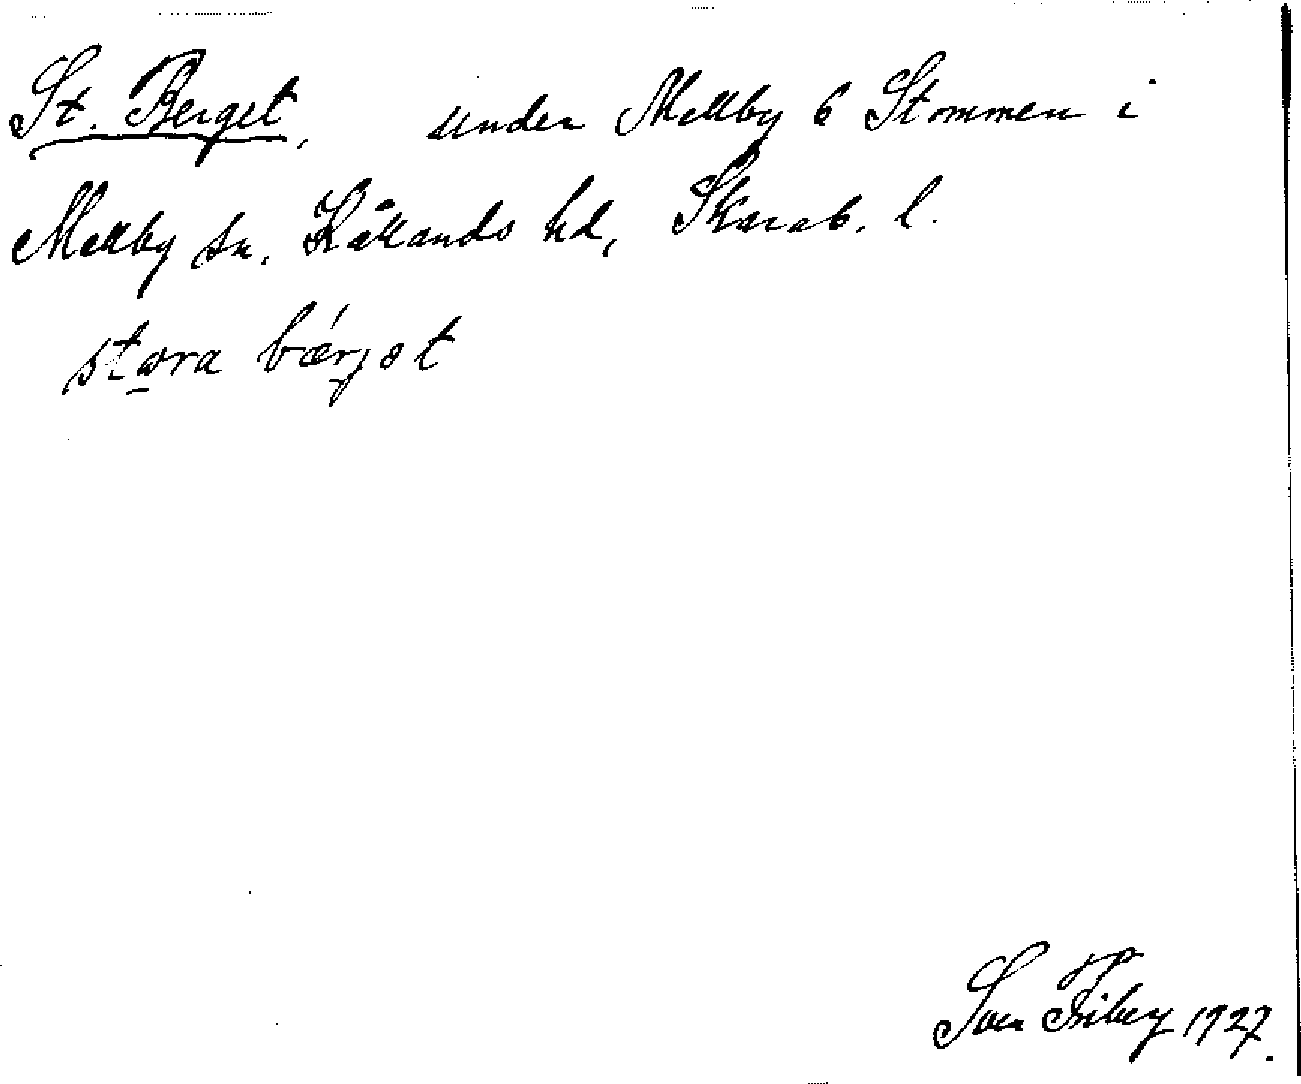 St. Berget, under Mellby 6 Stommen i
Mellby sn, Kållands hd, Skarab. l.
stora bærjət
Sven Fiby 1927.